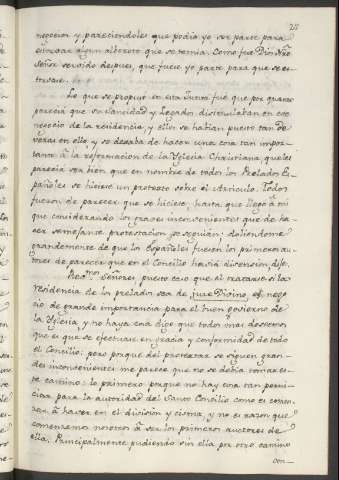 28
negocios y pareciendoles que podia yo ser parte para
estorbar algun alboroto que se temia. Como fue Dios Nro
Señor servido despues, que fuese yo parte para que se es-
torvase.
Lo que se propuso en esta Junta fué que por quanto
parecia que su Santidad y Legados disimulaban en este
negocio de la residencia, y ellos se habian puesto tan de
veras en ello, y se dexaba de hacer una cosa tan impor-
tante á la reformacion de la Yglesia Christiana, que les
parecia ser bien que en nombre de todos los Prelados Es-
pañoles se hiciese un protesto sobre el Articulo. Todos
fueron de parecer que se hiciese, hasta que llegó á mi
que considerando los graves inconvenientes que de ha-
cer semejante protestacion se seguirian: doliendome
grandemente de que los Españoles fuesen los primeros au-
tores de parecer que en el Concilio havia disension, dixe.
Rmos Señores, puesto caso que el tratarse si la
residencia de los prelados sea de jure Divino, es nego-
cio de grande importancia para el buen govierno de
la Yglesia, y no haya cosa dice que todos mas deseemos
que es que se efectuase en gracia y conformidad de todo
el Concilio: pero porque del protextar se siguen gran-
des inconvenientes me parece que no se debia tomar es-
te camino: lo primero porque no hay cosa tan perni-
ciosa para la autoridad del Santo Concilio como es comen-
zar á haver en el division y cisma, y no es razon que
comenzemos nosotros á ser los primeros auctores de
ella. Principalmente pudiendo sin ella por otro camino
con-